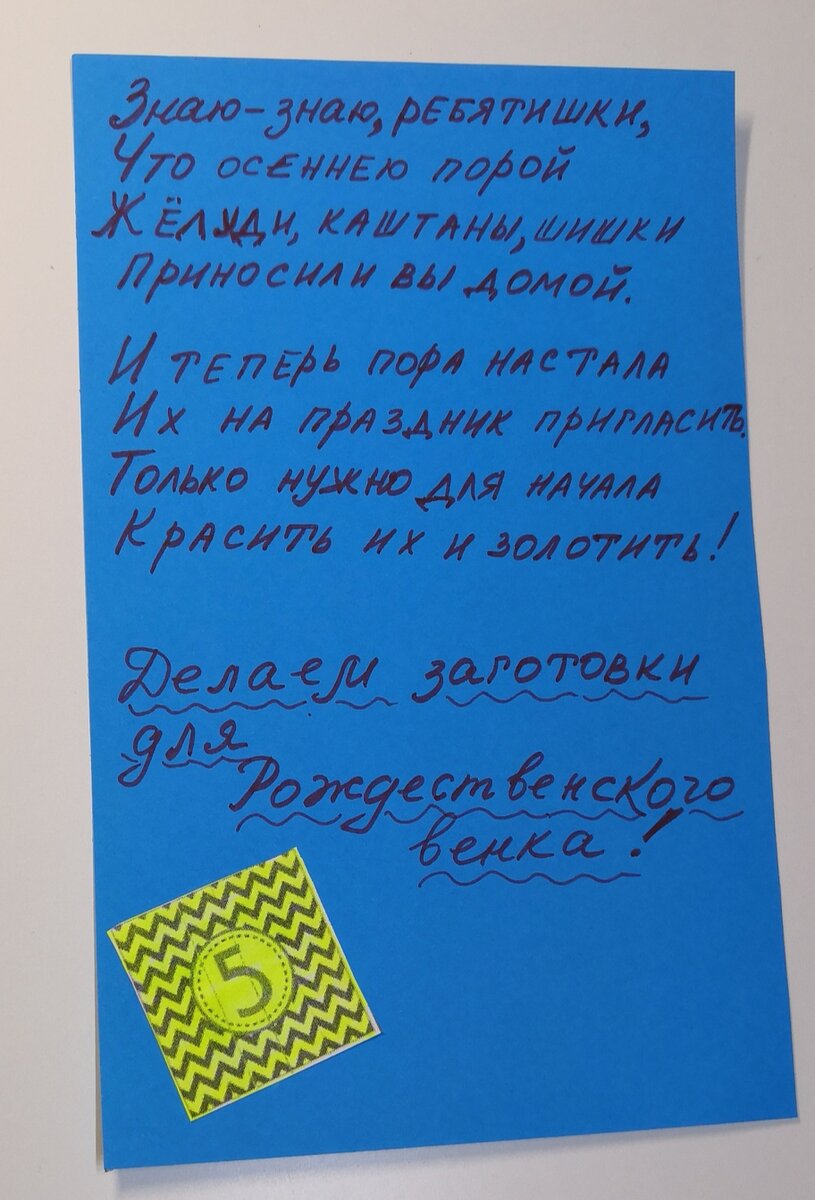 Знаю-знаю, ребятишки,
Что осеннею порой
Жёлуди, каштаны, шишки
Приносили вы домой.
И теперь пора настала
Их на праздник пригласить.
Только нужно для начала
Красить их и золотить!
Делаем заготовки
для
Рождественского
венка!
5